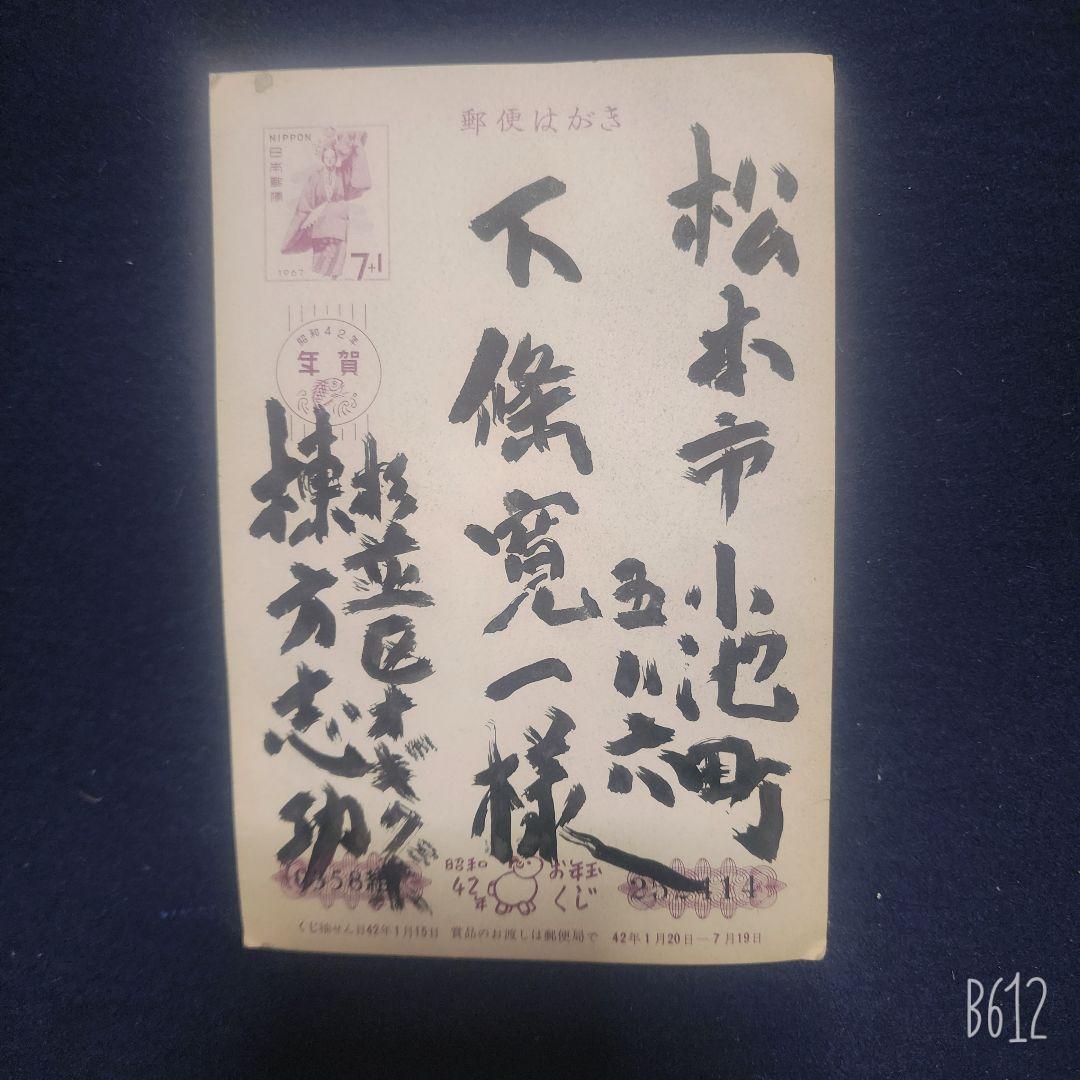 郵便はがき
松本市小池町
五八六
下條寛一様
杉並区オギクボ
棟方志功
NIPPON
日本郵便
1967
7+1
昭和42年
年賀
昭和42年
お年玉くじ
414
くじ抽せん日42年1月15日 賞品のお渡しは郵便局で 42年1月20日—7月19日
B612